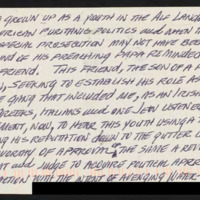 GROWN UP AS A YOUTH IN THE ALF LAND
ERICAN PURITANS POLITICS AND WHEN TH
PERIAL PRESECUTION MAY NOT HAVE BEE
OF HIS PREACHING PAPA REMINDED
FRIEND. THIS FRIEND, THE SON OF A
SEEKING TO ESTABLISH HIS ROLE AS
GANG THAT INCLUDED ME, AS AN IRISH
GREEKS, ITALIANS AND ONE JEW LISTENED
MENT, NOW, TO HEAR THIS YOUTH USING A
HIS REPUTATION DOWN TO THE GUTTER L
OF THE SAME A REVE
AND JUDGE TO ACQUIRE POLITICAL APPRE
ACTION WITH THE INTENT OF AVENGING WATER